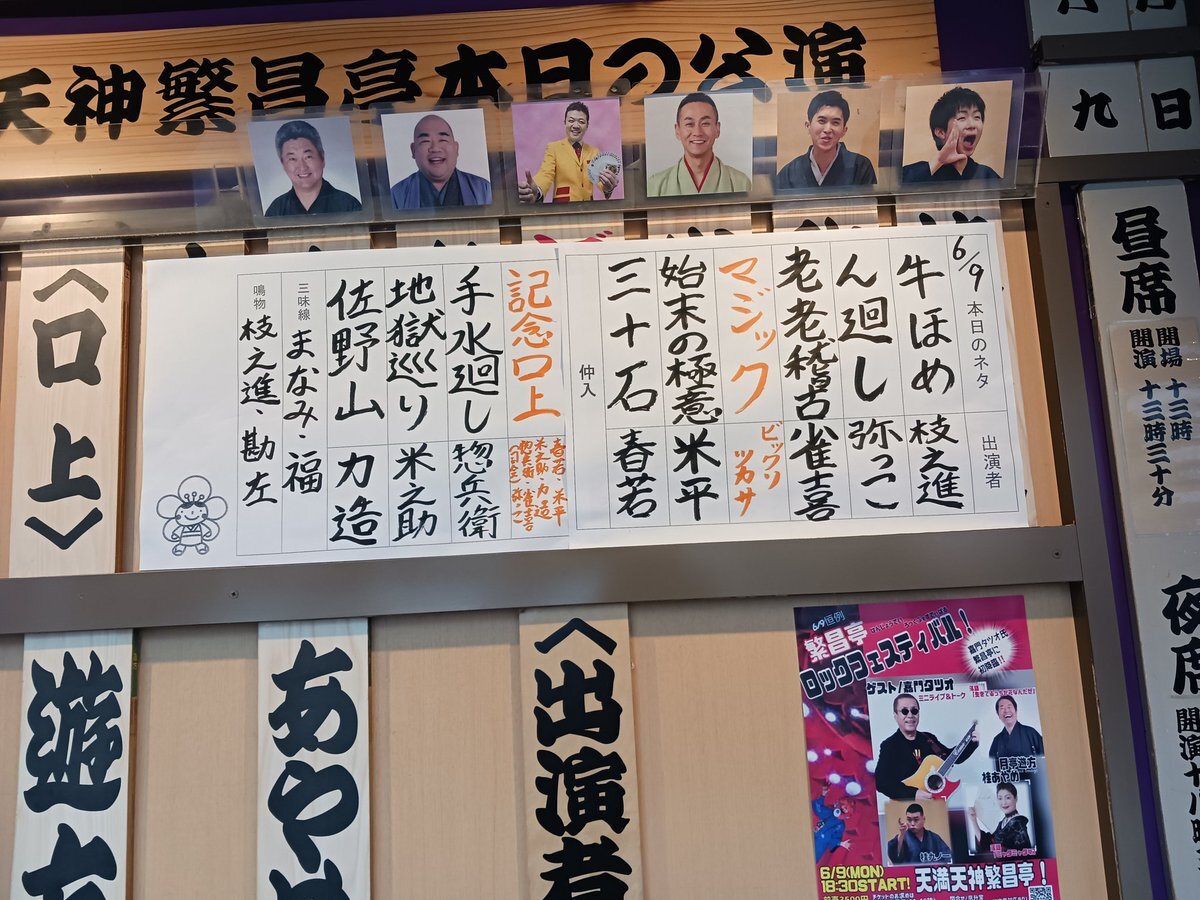 天神繁昌亭本日の公演
6/9 本日のネタ 出演者
牛ほめ 枝之進
ん廻し 弥っこ
老老稽古 雀喜
マジック ビックリツカサ
始末の極意 米平
三十石 春若
仲入
記念口上 春若・米平 米之助・力造 惣兵衛・雀喜
手水廻し 惣兵衛
地獄巡り 米之助
佐野山 力造
三味線 まなみ・福
鳴物 枝之進・勘左
〈口上〉
九日
昼席
開場 十三時
開演 十三時三十分
夜席
あや
〈出演者
6/9恒例
繁昌亭
ロックフェスティバル!
嘉門タツオ氏
繁昌亭に
初降臨!!
ゲスト/嘉門タツオ
ミニライブ&トーク
月亭遊方
桂あやめ
6/9(MON)
18:30START!
天満天神繁昌亭!